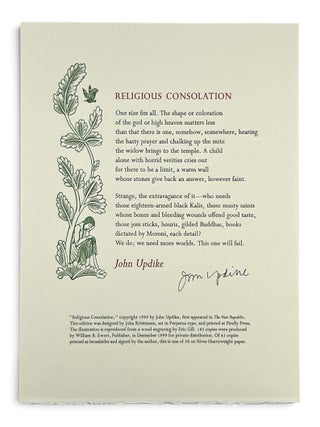 RELIGIOUS CONSOLATION
One size fits all. The shape or coloration
of the god or high heaven matters less
than that there is one, somehow, somewhere, hearing
the hasty prayer and chalking up the mite
the widow brings to the temple. A child
alone with horrid verities cries out
for there to be a limit, a warm wall
whose stones give back an answer, however faint.
Strange, the extravagance of it—who needs
those eighteen-armed black Kalis, those musty saints
whose bones and bleeding wounds offend good taste,
those joss sticks, houris, gilded Buddhas, books
dictated by Moroni, each detail?
We do; we need more worlds. This one will fail.
John Updike
John Updike
"Religious Consolation," copyright 1999 by John Updike, first appeared in The New Republic.
This edition was designed by John Kristensen, set in Perpetua type, and printed at Firefly Press.
The illustration is reproduced from a wood engraving by Eric Gill. 181 copies were produced
by William B. Ewert, Publisher, in December 1999 for private distribution. Of 62 copies
printed as broadsides and signed by the author, this is one of 10 on Rives Heavyweight paper.